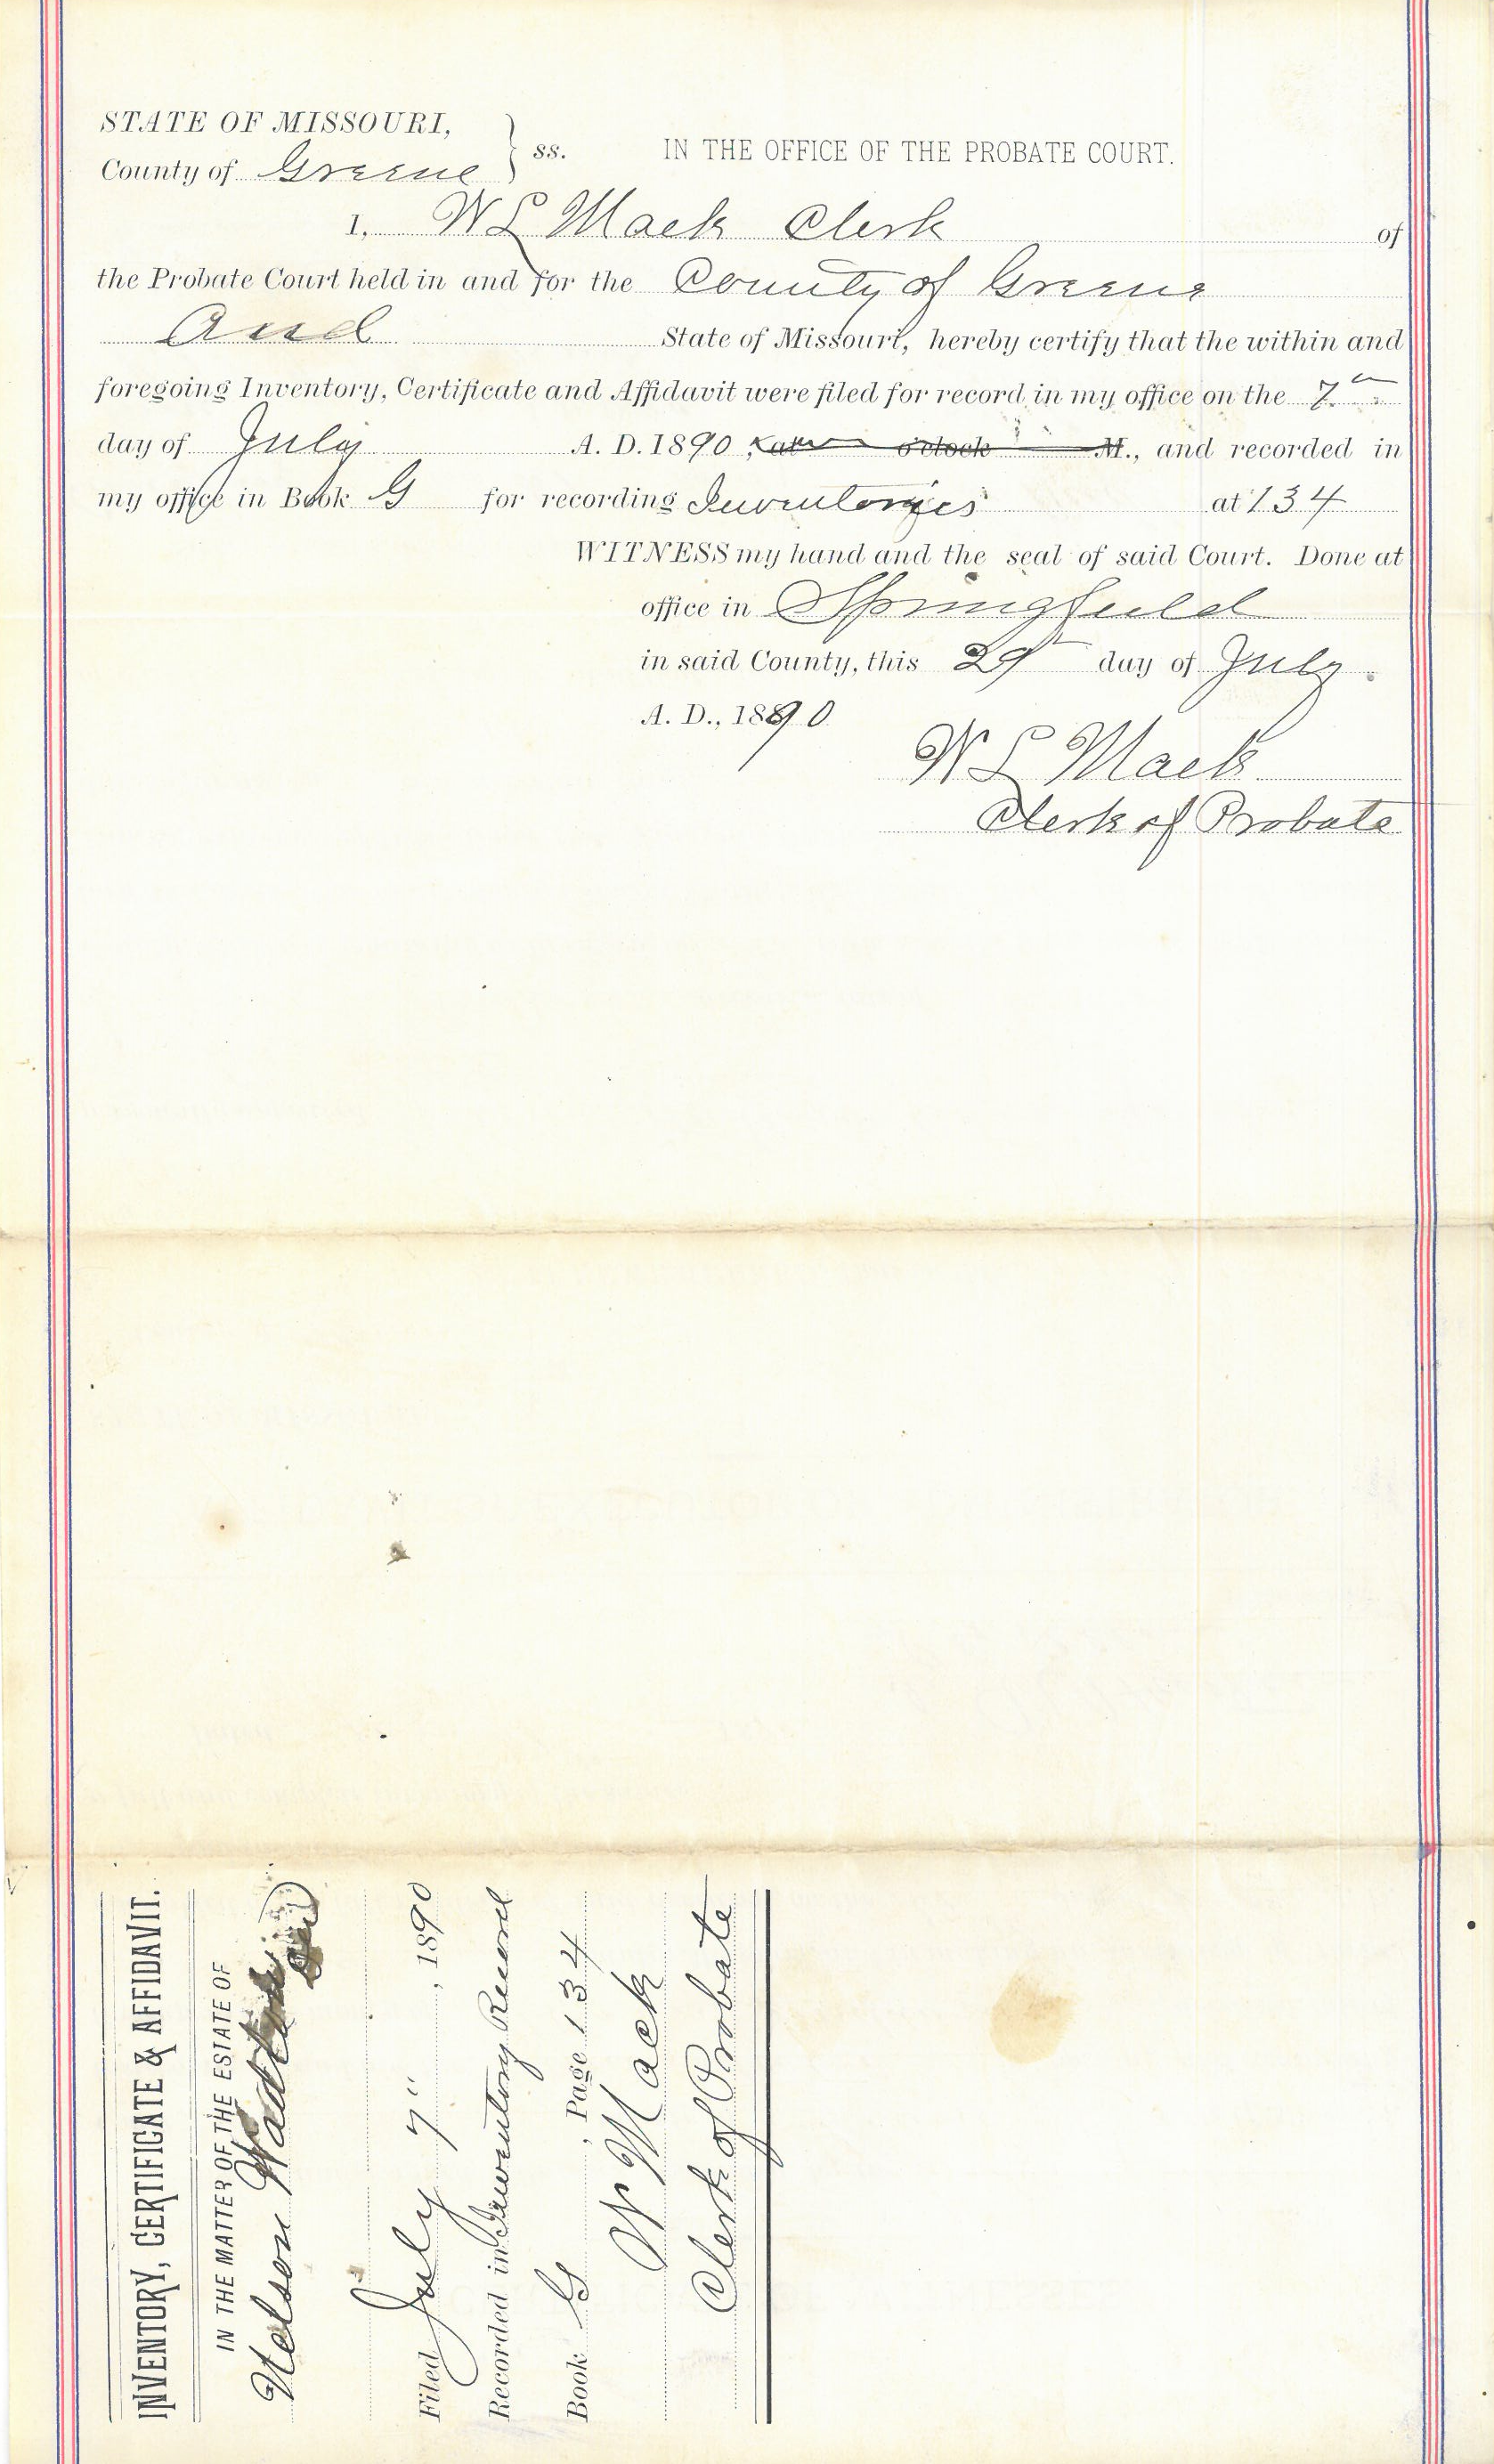 STATE OF MISSOURI,
County of Greene } ss. IN THE OFFICE OF THE PROBATE COURT.
I, W L Mack Clerk of
the Probate Court held in and for the County of Greene
and State of Missouri, hereby certify that the within and
foregoing Inventory, Certificate and Affidavit were filed for record in my office on the 7"
day of July A. D. 1890, at o'clock M., and recorded in
my office in Book G for recording Inventories at 134
WITNESS my hand and the seal of said Court. Done at
office in Springfield
in said County, this 29" day of July.
A. D., 1890
W L Mack
Clerk of Probate
INVENTORY, CERTIFICATE & AFFIDAVIT.
IN THE MATTER OF THE ESTATE OF
Nelson
Filed July 7", 1890
Recorded in Inventory Record
Book G, Page 134
W Mack
Clerk of Probate